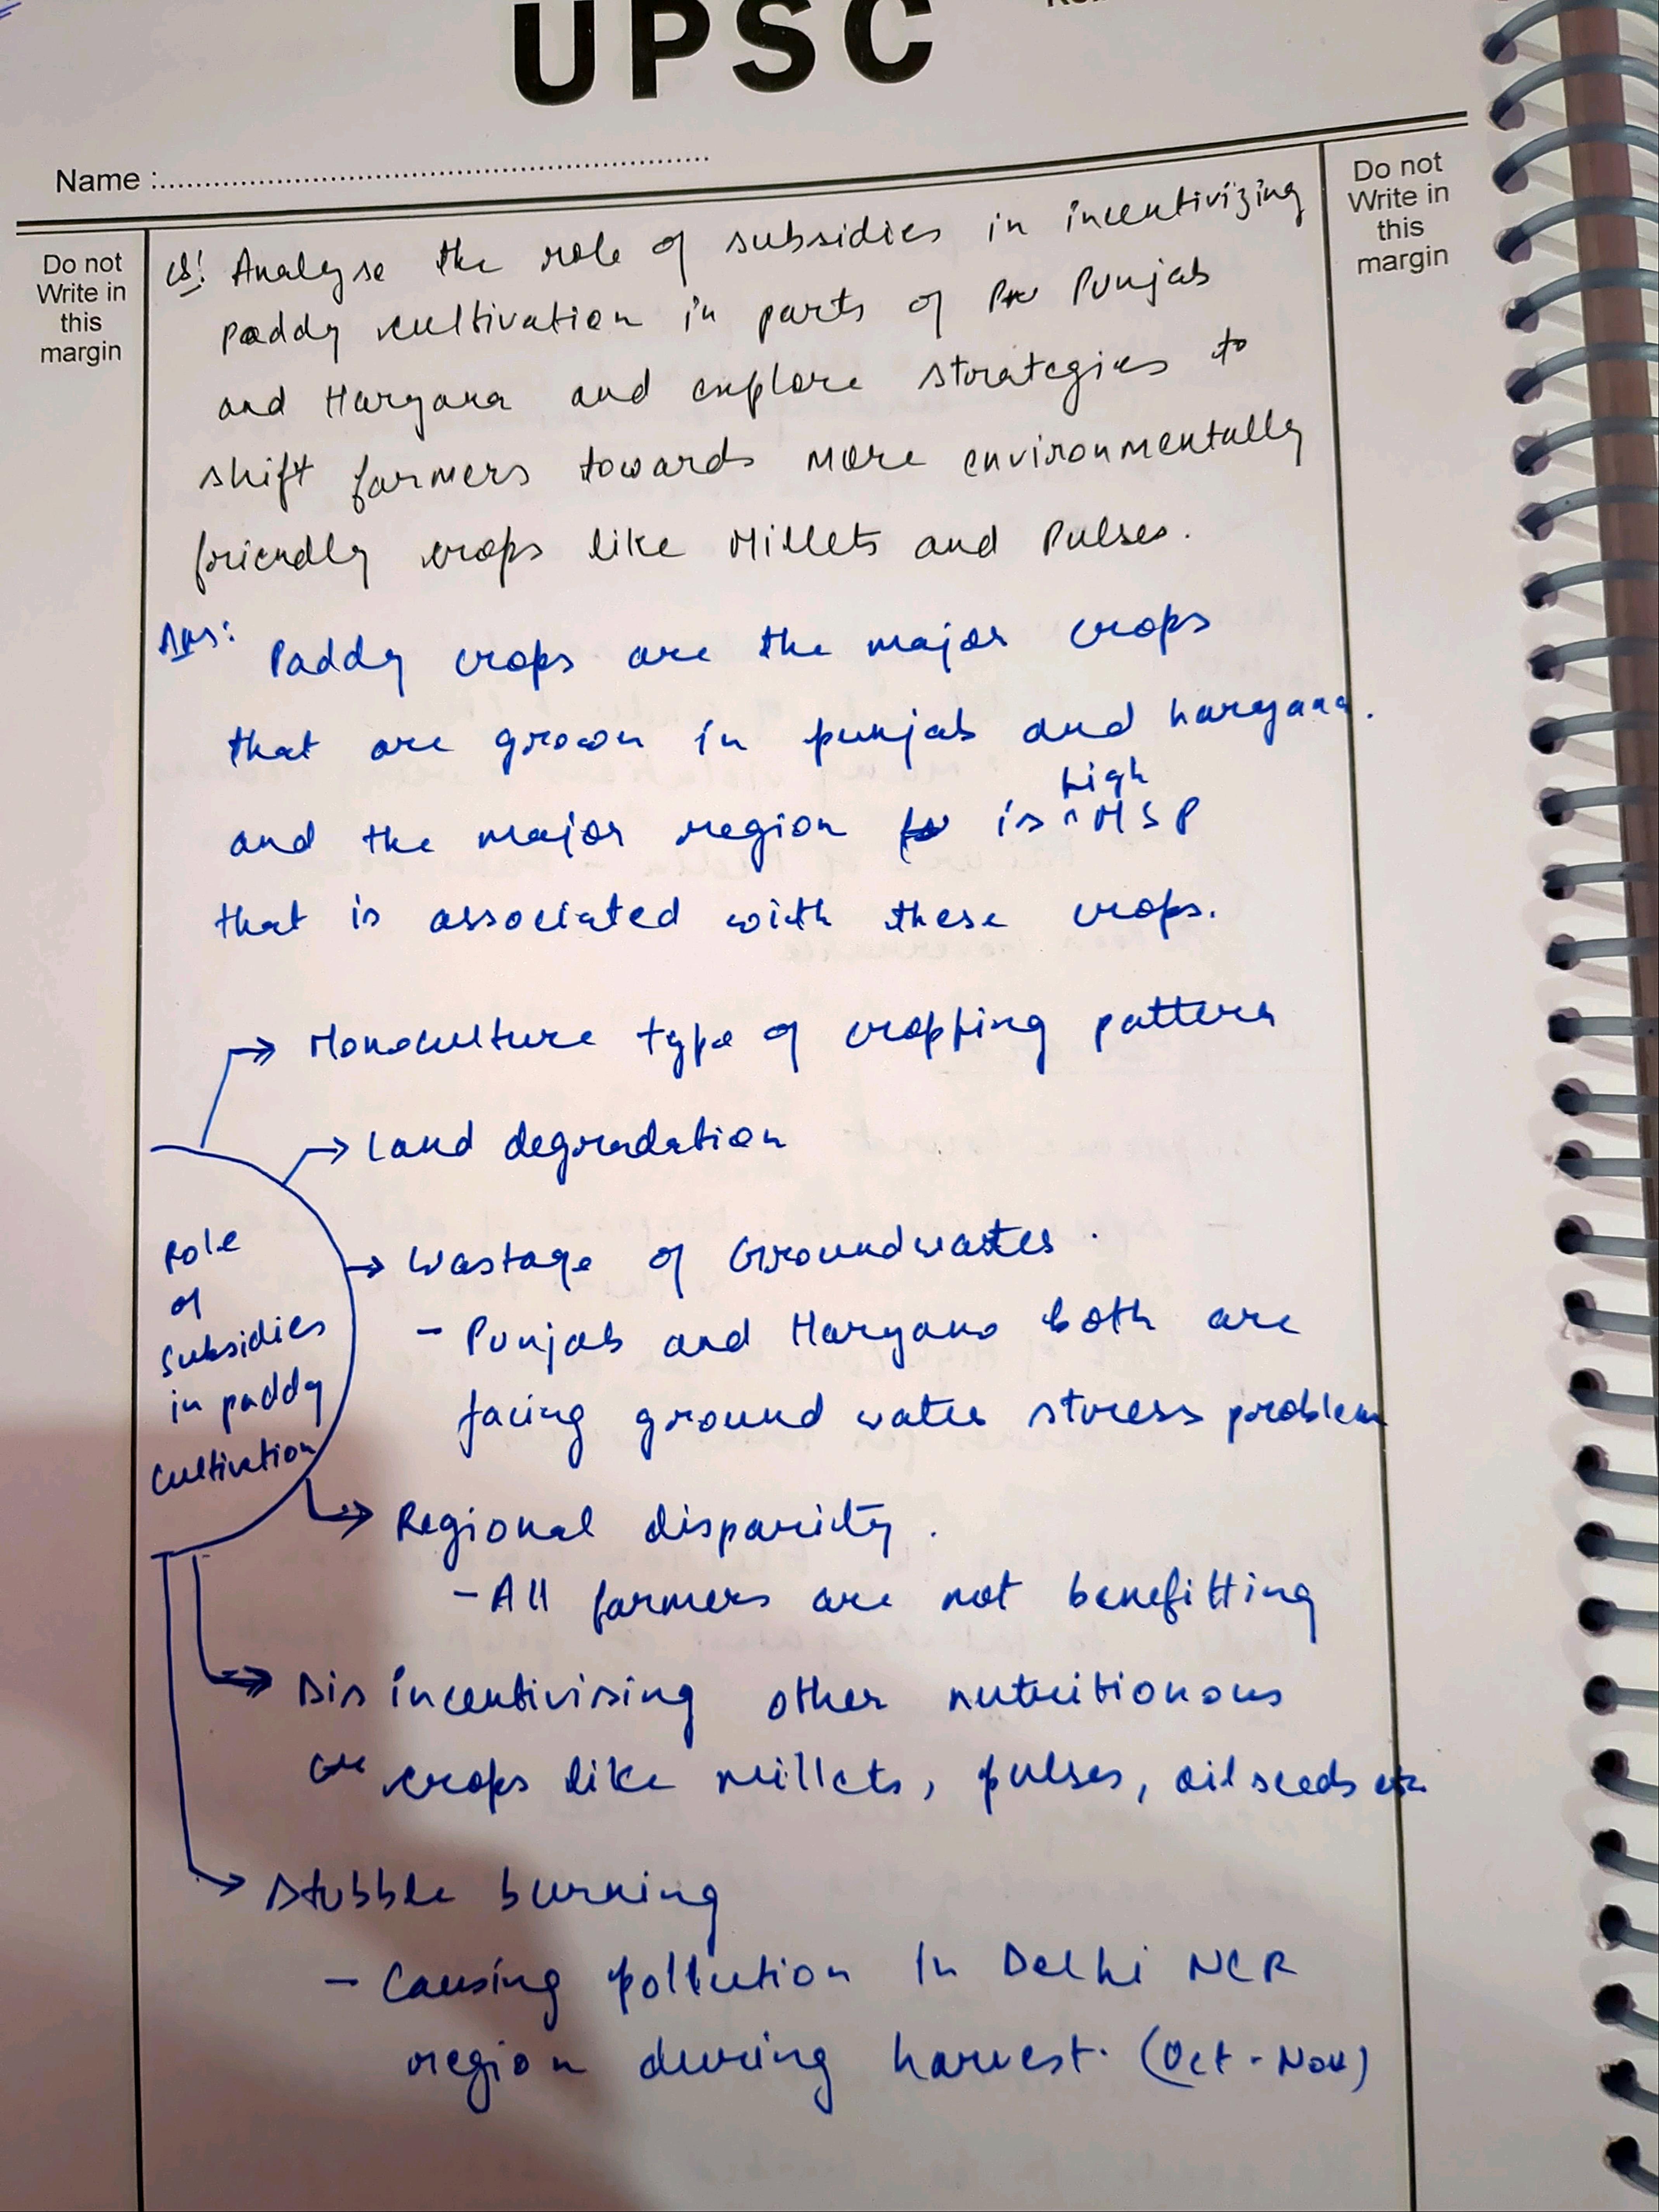 UPSC
Name :
Do not
Write in
this
margin
Do not
Write in
this
margin
Q! Analyse the role of subsidies in incentivizing
paddy cultivation in parts of Punjab
and Haryana and explore strategies to
shift farmers towards more environmentally
friendly crops like Millets and Pulses.
Ans: Paddy crops are the major crops
that are grown in punjab and haryana.
and the major region is high MSP
that is associated with these crops.
Monoculture type of cropping pattern
Land degradation
Role
of
subsidies
in paddy
cultivation
Wastage of Groundwater.
- Punjab and Haryana both are
facing ground water stress problem
Regional disparity.
- All farmers are not benefitting
Disincentivising other nutritionous
crops like millets, pulses, oil seeds etc
Stubble burning
- Causing pollution in Delhi NCR
region during harvest. (Oct - Nov)